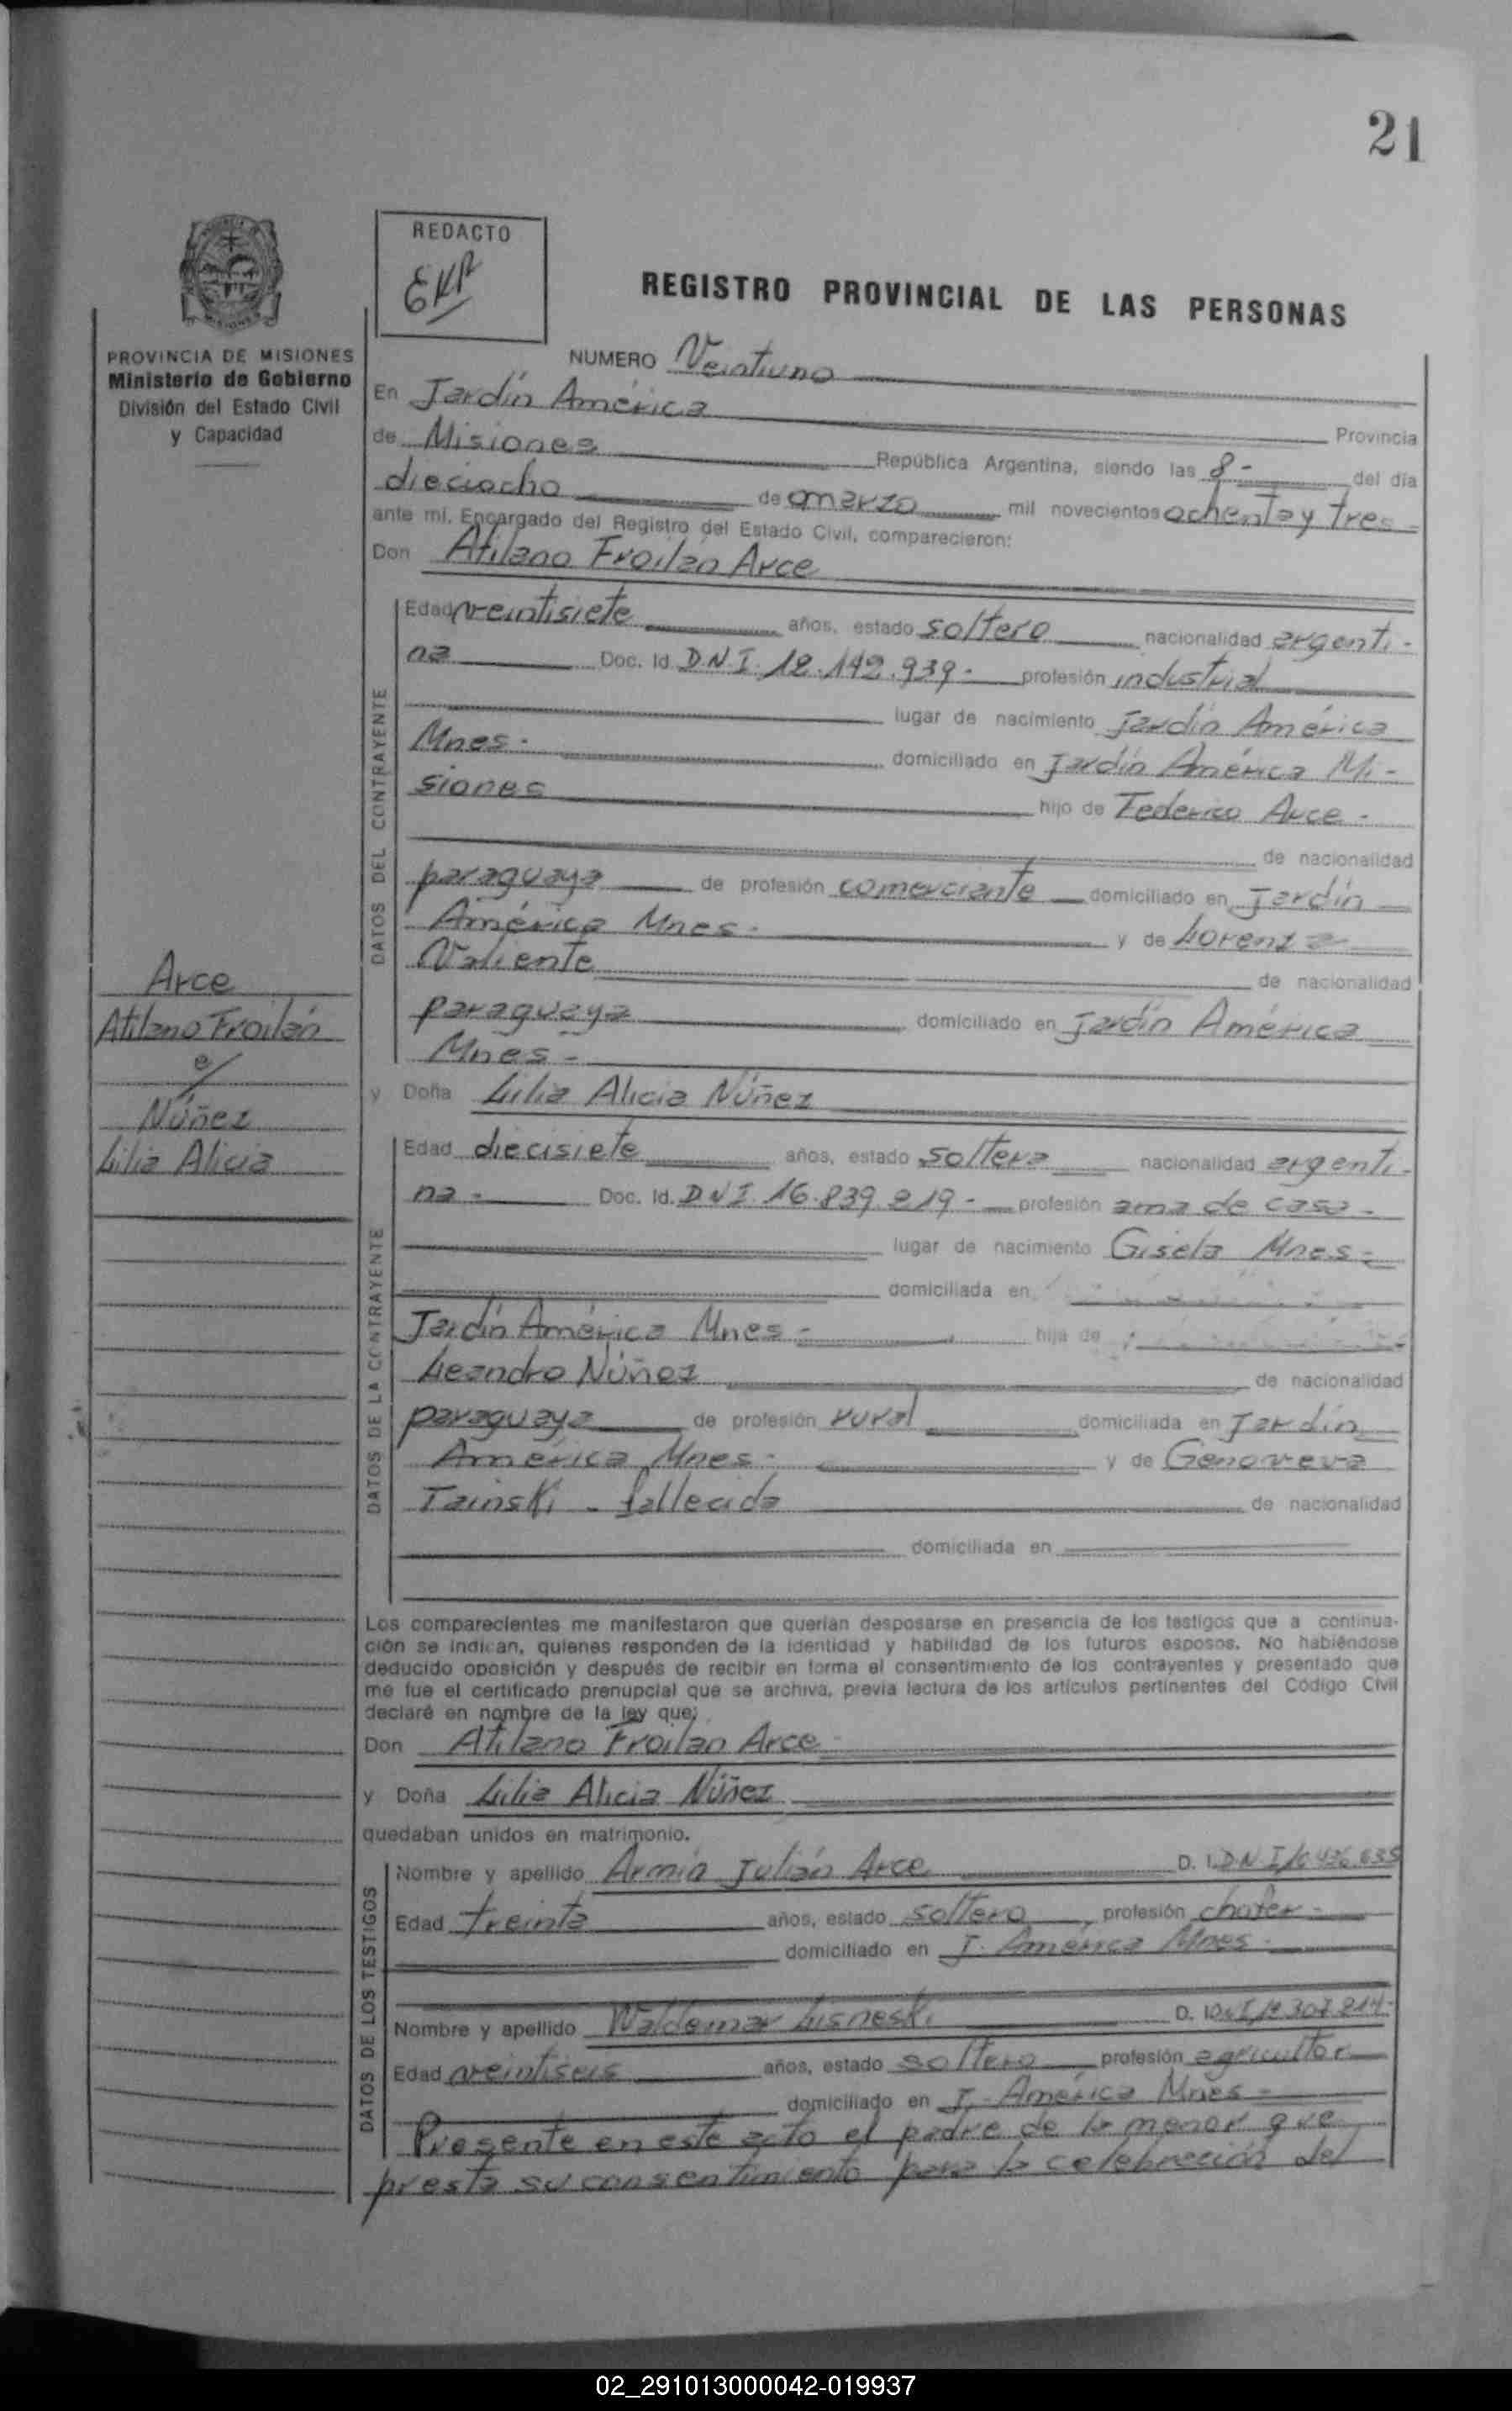 21
REDACTO
EKR
REGISTRO PROVINCIAL DE LAS PERSONAS
PROVINCIA DE MISIONES
Ministerio de Gobierno
División del Estado Civil
y Capacidad
NUMERO Veintiuno
En Jardín América
Provincia
de Misiones República Argentina, siendo las 8- del día
dieciocho de marzo mil novecientos ochenta y tres-
ante mi, Encargado del Registro del Estado Civil, comparecieron:
Don Atilano Froilan Arce
DATOS DEL CONTRAYENTE
Edad veintisiete años, estado soltero nacionalidad argenti-
na Doc. Id. D.N.I. 12.142.939.- profesión industrial
lugar de nacimiento Jardín América
Mnes.- domiciliado en Jardín América Mi-
siones hijo de Federico Arce.-
de nacionalidad
paraguaya de profesión comerciante domiciliado en Jardín
América Mnes.- y de Lorenza
Valiente de nacionalidad
paraguaya domiciliado en Jardín América
Mnes.-
Arce
Atilano Froilán
c/
Núñez
Lilia Alicia
y Doña Lilia Alicia Núñez
DATOS DE LA CONTRAYENTE
Edad diecisiete años, estado soltera nacionalidad argenti-
na- Doc. Id. DNI. 16.839.219- profesión ama de casa-
lugar de nacimiento Gisela Mnes-
domiciliada en
Jardín América Mnes- hija de
Leandro Núñez de nacionalidad
paraguaya de profesión rural domiciliada en Jardín
América Mnes.- y de Genoveva
Tainski - fallecida de nacionalidad
domiciliada en
Los comparecientes me manifestaron que querían desposarse en presencia de los testigos que a continua-
ción se indican, quienes responden de la identidad y habilidad de los futuros esposos. No habiéndose
deducido oposición y después de recibir en forma el consentimiento de los contrayentes y presentado que
me fue el certificado prenupcial que se archiva, previa lectura de los artículos pertinentes del Código Civil
declaré en nombre de la ley que:
Don Atilano Froilan Arce
y Doña Lilia Alicia Núñez
quedaban unidos en matrimonio.
DATOS DE LOS TESTIGOS
Nombre y apellido Julián Arce D. I. D.N.I.
Edad treinta años, estado soltero profesión chofer-
domiciliado en J. América Mnes-
Nombre y apellido Waldemar Lisneski D. I. DNI
Edad veintiseis años, estado soltero profesión agricultor
domiciliado en J. América Mnes-
Presente en este acto el padre de la menor que
presta su consentimiento para la celebración del
02_291013000042-019937